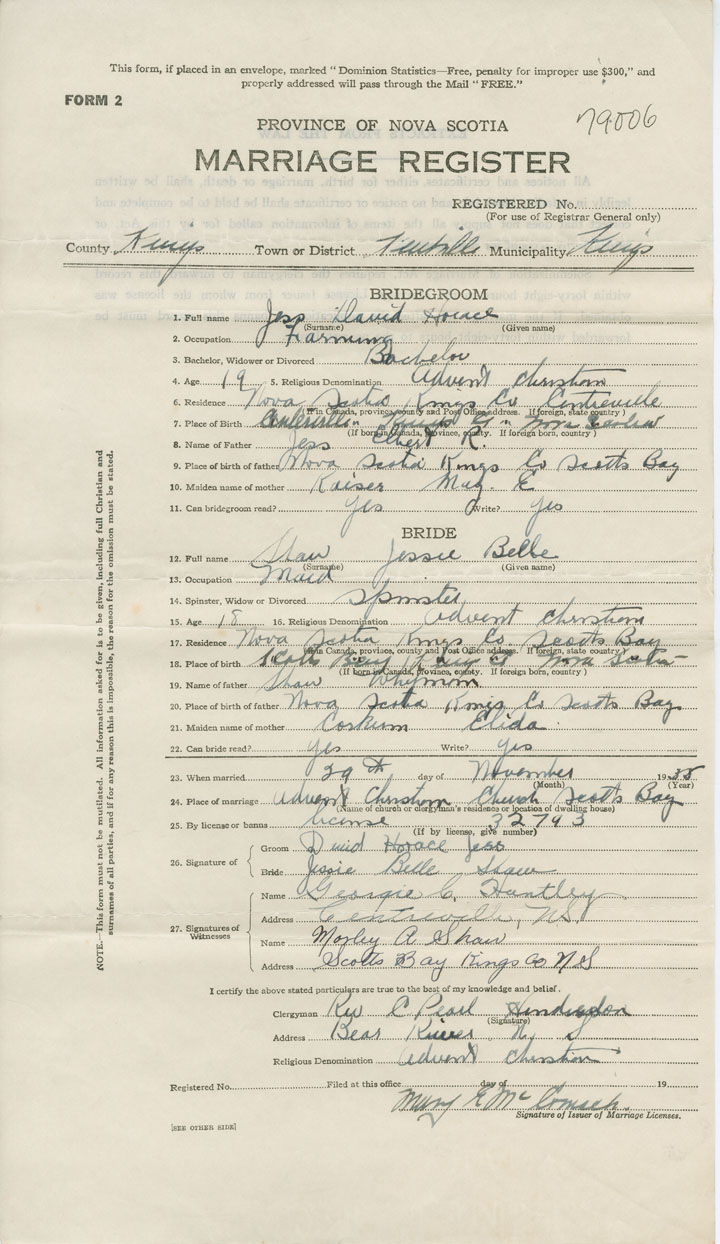 This form, if placed in an envelope, marked "Dominion Statistics—Free, penalty for improper use $300," and
properly addressed will pass through the Mail "FREE."
FORM 2
79006
PROVINCE OF NOVA SCOTIA
MARRIAGE REGISTER
REGISTERED No.
(For use of Registrar General only)
County Kings Town or District Kentville Municipality Kings
BRIDEGROOM
1. Full name Jess David Horace
(Surname) (Given name)
2. Occupation Farming
3. Bachelor, Widower or Divorced Bachelor
4. Age 19 5. Religious Denomination Advent Christian
6. Residence Nova Scotia Kings Co Centreville
(If in Canada, province, county and Post Office address. If foreign, state country)
7. Place of Birth Centreville Kings Co Nova Scotia
(If born in Canada, province, county. If foreign born, country)
8. Name of Father Jess Elbert R.
9. Place of birth of father Nova Scotia Kings Co Scotts Bay
10. Maiden name of mother Kaiser May. E
11. Can bridegroom read? Yes Write? Yes
BRIDE
12. Full name Shaw Jessie Belle
(Surname) (Given name)
13. Occupation Maid
14. Spinster, Widow or Divorced Spinster
15. Age 18 16. Religious Denomination Advent Christian
17. Residence Nova Scotia Kings Co. Scotts Bay
(If in Canada, province, county and Post Office address. If foreign, state country)
18. Place of birth Scotts Bay Kings Co Nova Scotia
(If born in Canada, province, county. If foreign born, country)
19. Name of father Shaw
20. Place of birth of father Nova Scotia Kings Co Scotts Bay
21. Maiden name of mother Corkum Elida
22. Can bride read? Yes Write? Yes
23. When married 29th day of November 19
(Month) (Year)
24. Place of marriage Advent Christian Church Scotts Bay
(Name of church or clergyman's residence or location of dwelling house)
25. By license or banns license 32793
(If by license, give number)
26. Signature of
Groom David Horace Jess
Bride Jessie Belle Shaw
27. Signatures of Witnesses
Name Georgie C. Huntley
Address Centreville, N.S.
Name Morley A Shaw
Address Scotts Bay Kings Co N.S
I certify the above stated particulars are true to the best of my knowledge and belief.
Clergyman Rev C Pearl
(Signature)
Address Bear River N. S
Religious Denomination Advent Christian
Registered No. Filed at this office day of 19
Mary E. McCormack.
Signature of Issuer of Marriage Licenses.
[SEE OTHER SIDE]
NOTE.—This form must not be mutilated. All information asked for is to be given, including full Christian and
surnames of all parties, and if for any reason this is impossible, the reason for the omission must be stated.